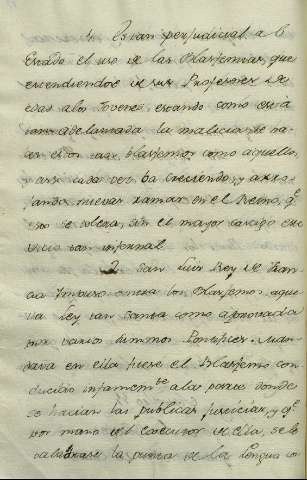 1. Es tan perjudicial a el
Estado el uso de las Blasfemias, que
estendiendose de sus Profesores de
edad a los Jovenes, estando como está
tan adelantada la malicia, se ha
cen estos mas blasfemos como aquellos,
y asi cada vez ba creciendo, y arro
jando nuevas ramas en el Reino, q.e
esto se tolera, sin el mayor castigo este
vicio tan infernal.
2. San Luis Rey de Fran
cia impuso contra los Blasfemos aque
lla Ley tan santa como aprovada
por varios Summos Pontifices. Man
dava en ella fuese el Blasfemo con
ducido infamem.te a la parte donde
se hacian las publicas justicias, y q.e
por mano del executor de ella, se le
taladrase la punta de la Lengua con